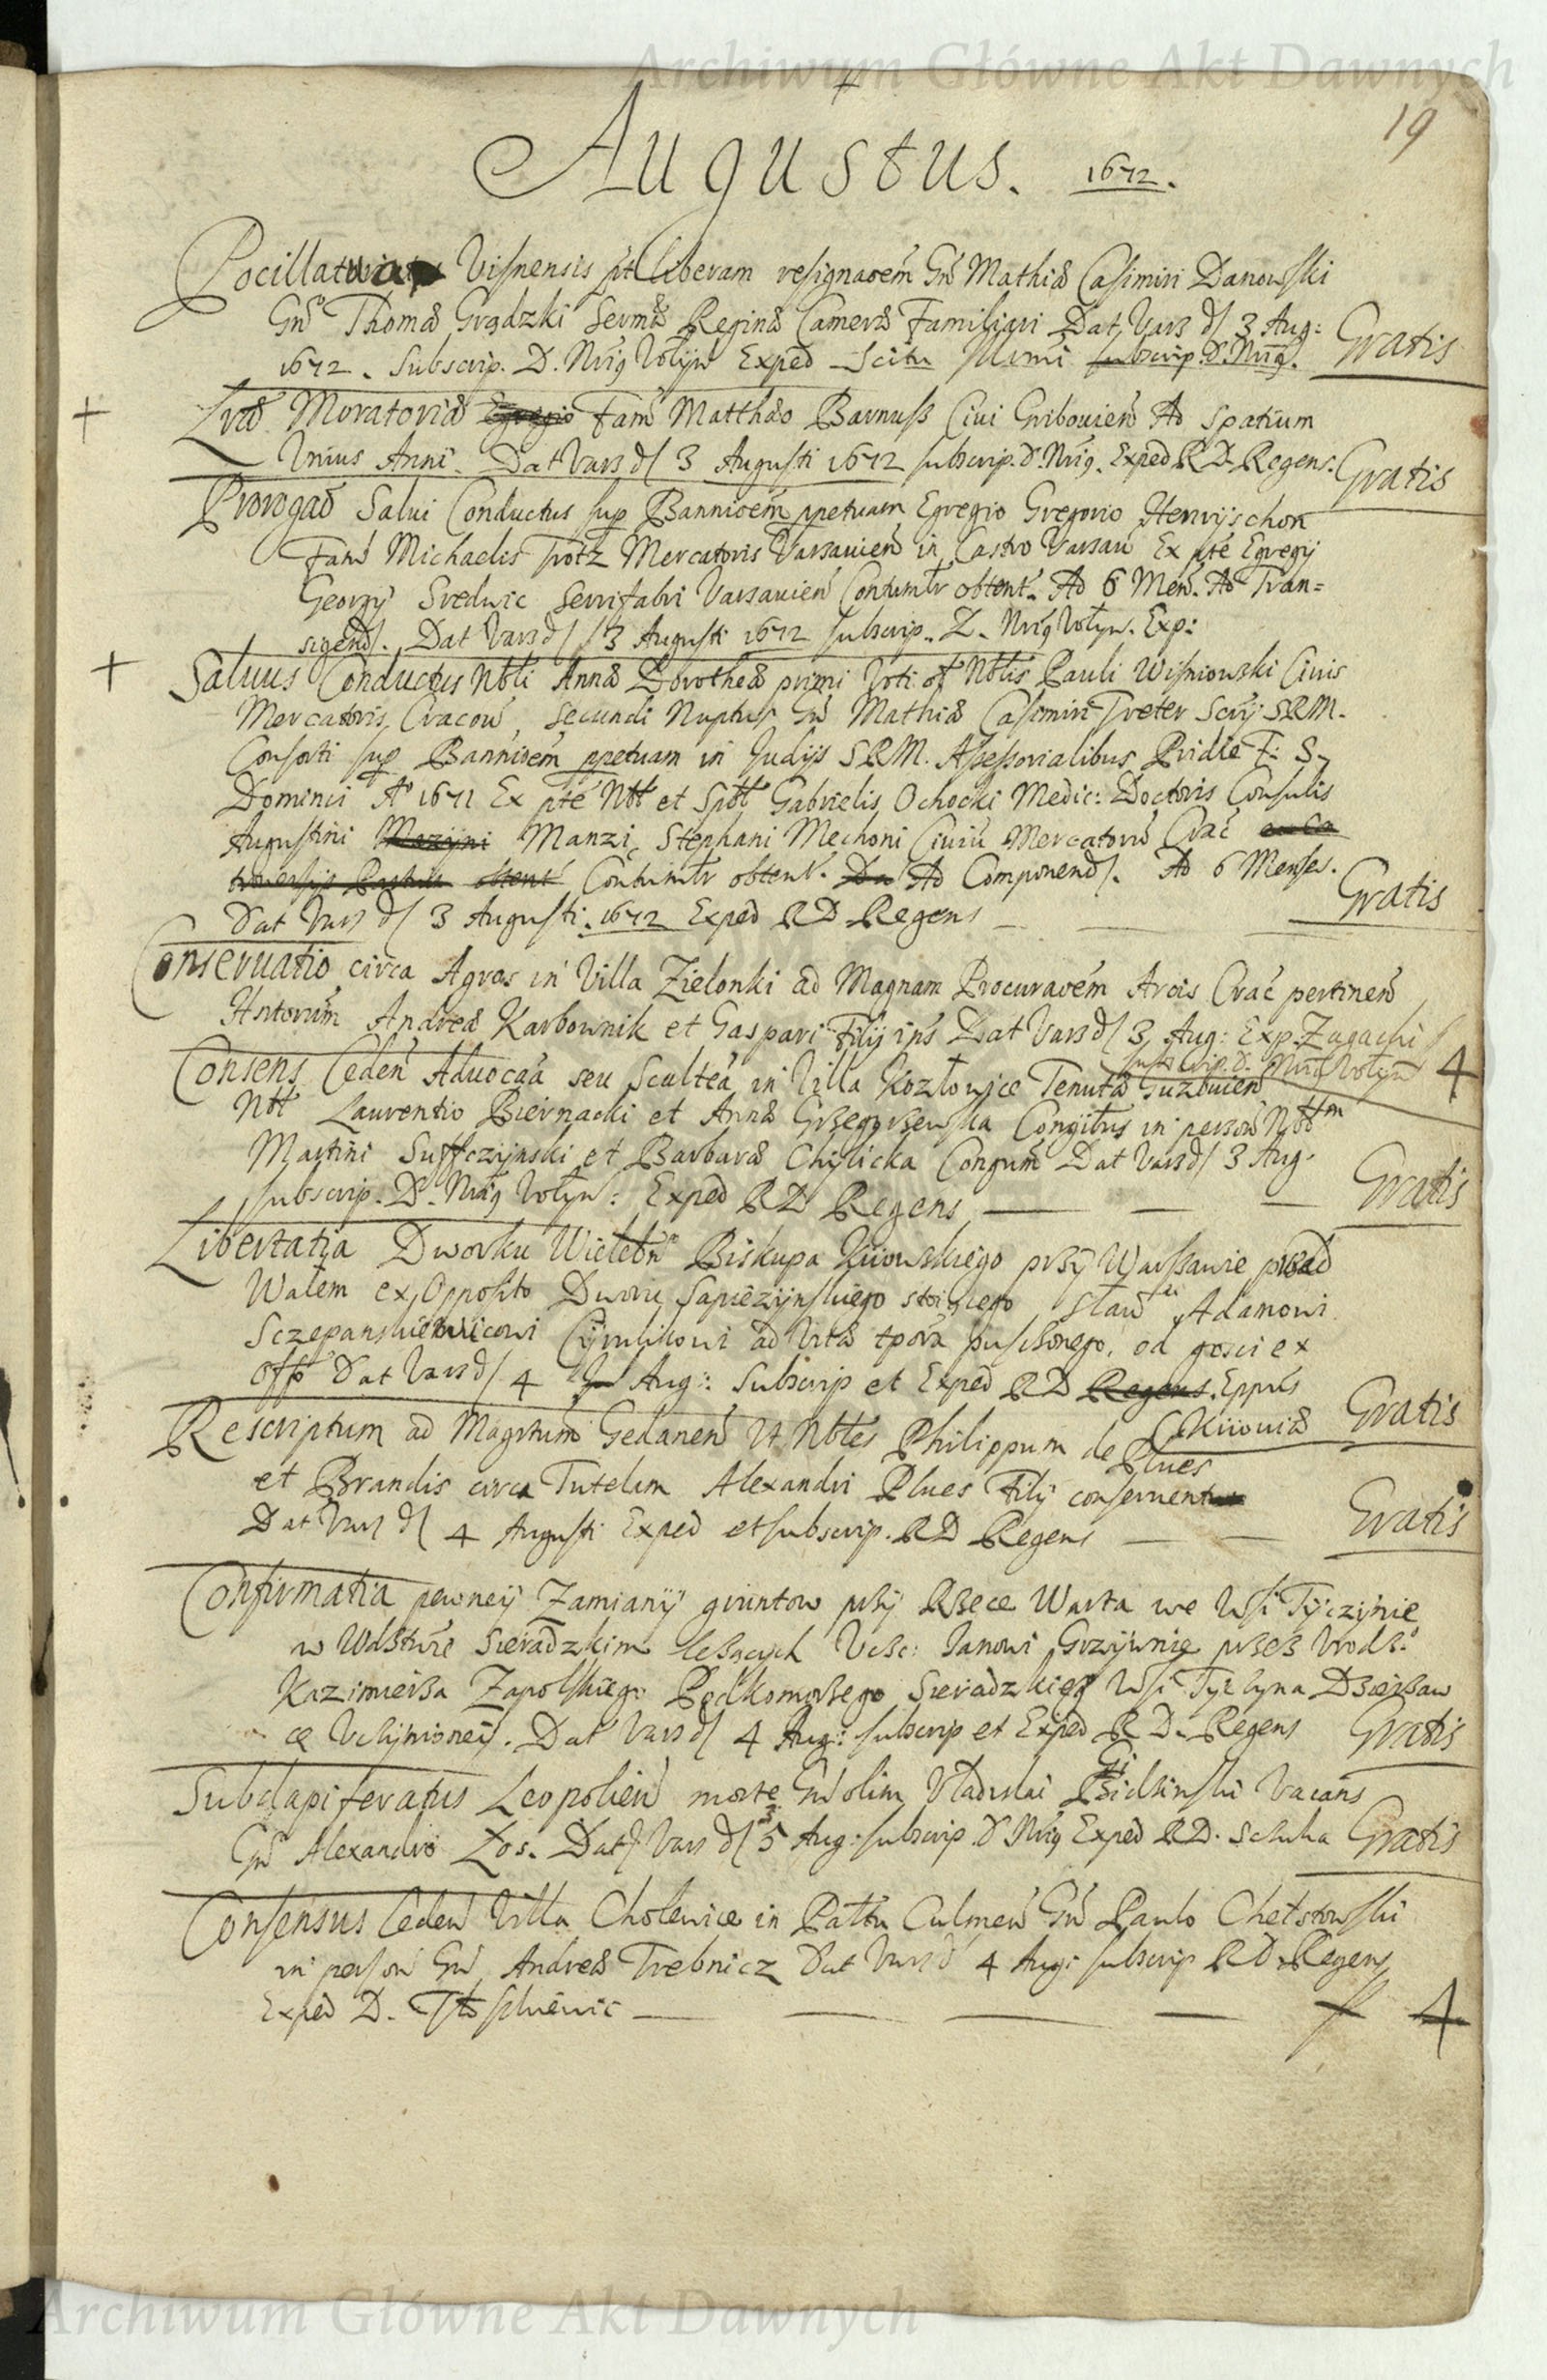 Archiwum Główne Akt Dawnych
19
Augustus. 1672.
Pocillatura Visnensis p̃t liberam resignaoẽm Gñs Mathiæ Casimiri Danowski
Gñso Thomæ Grądzki Sermæ Reginæ Cameræ Familiari Dat Vars d/ 3 Aug:
1672. Subscrip. D. Nrig Wołyn Exped Scitu subscrip. D. Nrig. Gratis
Lræ Moratoriæ Egregio Fam Matthæo Barnuss Civi Gribovieñ Ad Spatium
Unius Anni. Dat Vars d/ 3 Augusti 1672 subscrip. D. Nrig. Exped R D Regens. Gratis
Prorogaõ Salui Conductus sup Bannioẽm ppetuam Egregio Gregorio Henryschon
Fam Michaelis Trotz Mercatoris Varsavieñ in Castro Varsav Ex pte Egregy
Georgy Srednic Serrifabri Varsavieñ Contumtr obtent. Ad 6 Meñ. Ad Tran=
sigend/. Dat Vars d/ 3 Augusti 1672 subscrip. Z. Nrig Wołyn. Exp:
Saluus Conductus Nbli Annæ Dorotheæ primi Voti ol Nblis Pauli Wisniowski Civis
Mercatoris Cracoů, Secundi Nuptus Gñ Mathiæ Casimiri Treter Scrij SRM.
Consorti sup Bannioẽm ppetuam in Judijs SRM. Assessorialibus Pridie F: S
Dominici Ao 1671 Ex pte Nbl et Sptl Gabrielis Ochocki Medic: Doctoris Consulis
Augustini Manzi, Stephani Mechoni Civiũ Mercatorũ Crac
obtent Contumtr obtent. Da Ad Componend/. Ad 6 Menses.
Dat Vars d/ 3 Augusti. 1672 Exped R D Regens Gratis
Conseruatio circa Agros in Villa Zielonki ad Magnam Procuraoẽm Arcis Crac pertineñ
Hntorum Andreæ Karbownik et Gaspari Filij ips Dat Vars d/ 3 Aug: Exp. Zagachi
subscrip. D. Nrig Wołyn 4
Consens Cedeñ Aduocaa seu Scultea in Villa Kozłowice Tenutæ Guzovieñ
Nbl Laurentio Biernacki et Annæ Grzegorzewska Congibus in person Nblm
Martini Suffczynski et Barbaræ Chylicka Congum Dat Vars d/ 3 Aug.
subscrip. D. Nrig Wołyn: Exped R D Regens Gratis
Libertatia Dworku Wielebn Biskupa Kiiowskiego przy Warszawie przed
Wałem ex Opposito Dworu Sapiezynskiego stoiącego, Sław Adamowi
Sczepanskiewicowi Cyrulikowi ad Vitæ tpora puszczonego, od gosci ex
offo Dat Vars d/ 4 Aug: Subscrip et Exped R D Regens. Eppus
Kiioviæ Gratis
Rescriptum ad Magrtum Gedaneñ Vt Nbles Philippum de Plues
et Brandis circa Tutelam Alexandri Plues Filij conseruent
Dat Vars d/ 4 Augusti Exped et subscrip. R D Regens Gratis
Confirmatia pewney Zamiany gruntow przy Rzece Warta we Wsi Tyczynie
w Wdstwie Sieradzkim lezących Vczc: Janowi Grzywnie przez Vrodz.
Kazimierza Zapolskiego Podkomorzego Sieradzkieg Wsi Tyczyna Dzierzaw
ce Vczynioney. Dat Vars d/ 4 Aug: subscrip et Exped R D. Regens Gratis
Subdapiferatus Leopolieñ morte Gñ olim Vladislai Bidzinski Vacans
Gñ Alexandro Łos. Dat Vars d/ 5 Aug: subscrip D Nrig Exped R D. Gratis
Consensus Cedeñ Villa Cholewice in Palltu Culmeñ Gñ Paulo Chełstowski
in person Gñ Andreæ Trebnicz Dat Vars d 4 Aug: subscrip R D Regens
Exped D. 4
Archiwum Główne Akt Dawnych